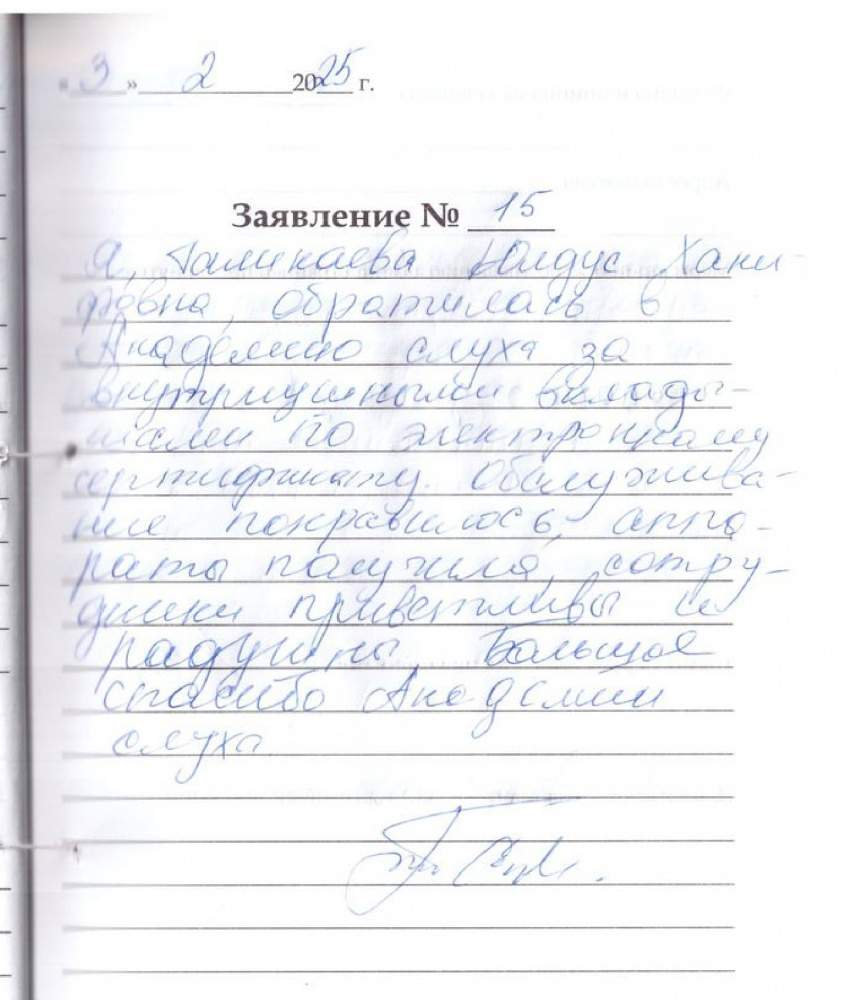 « 3 » 2 2025 г.
Заявление № 15
Я, Галикаева Юлдус Хани-
фовна, обратилась в
Академию слуха за
внутриушными вклады-
шами по электронному
сертификату. Обслужива-
ние понравилось, аппа-
раты получила, сотру-
дники приветливы и
радушны. Большое
спасибо Академии
слуха.